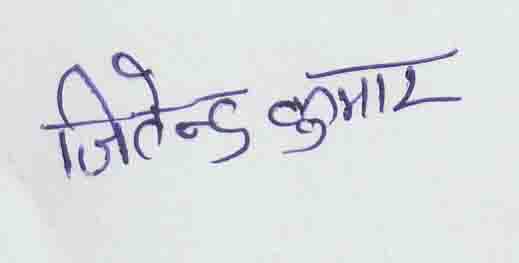 जितेन्द्र कुमार